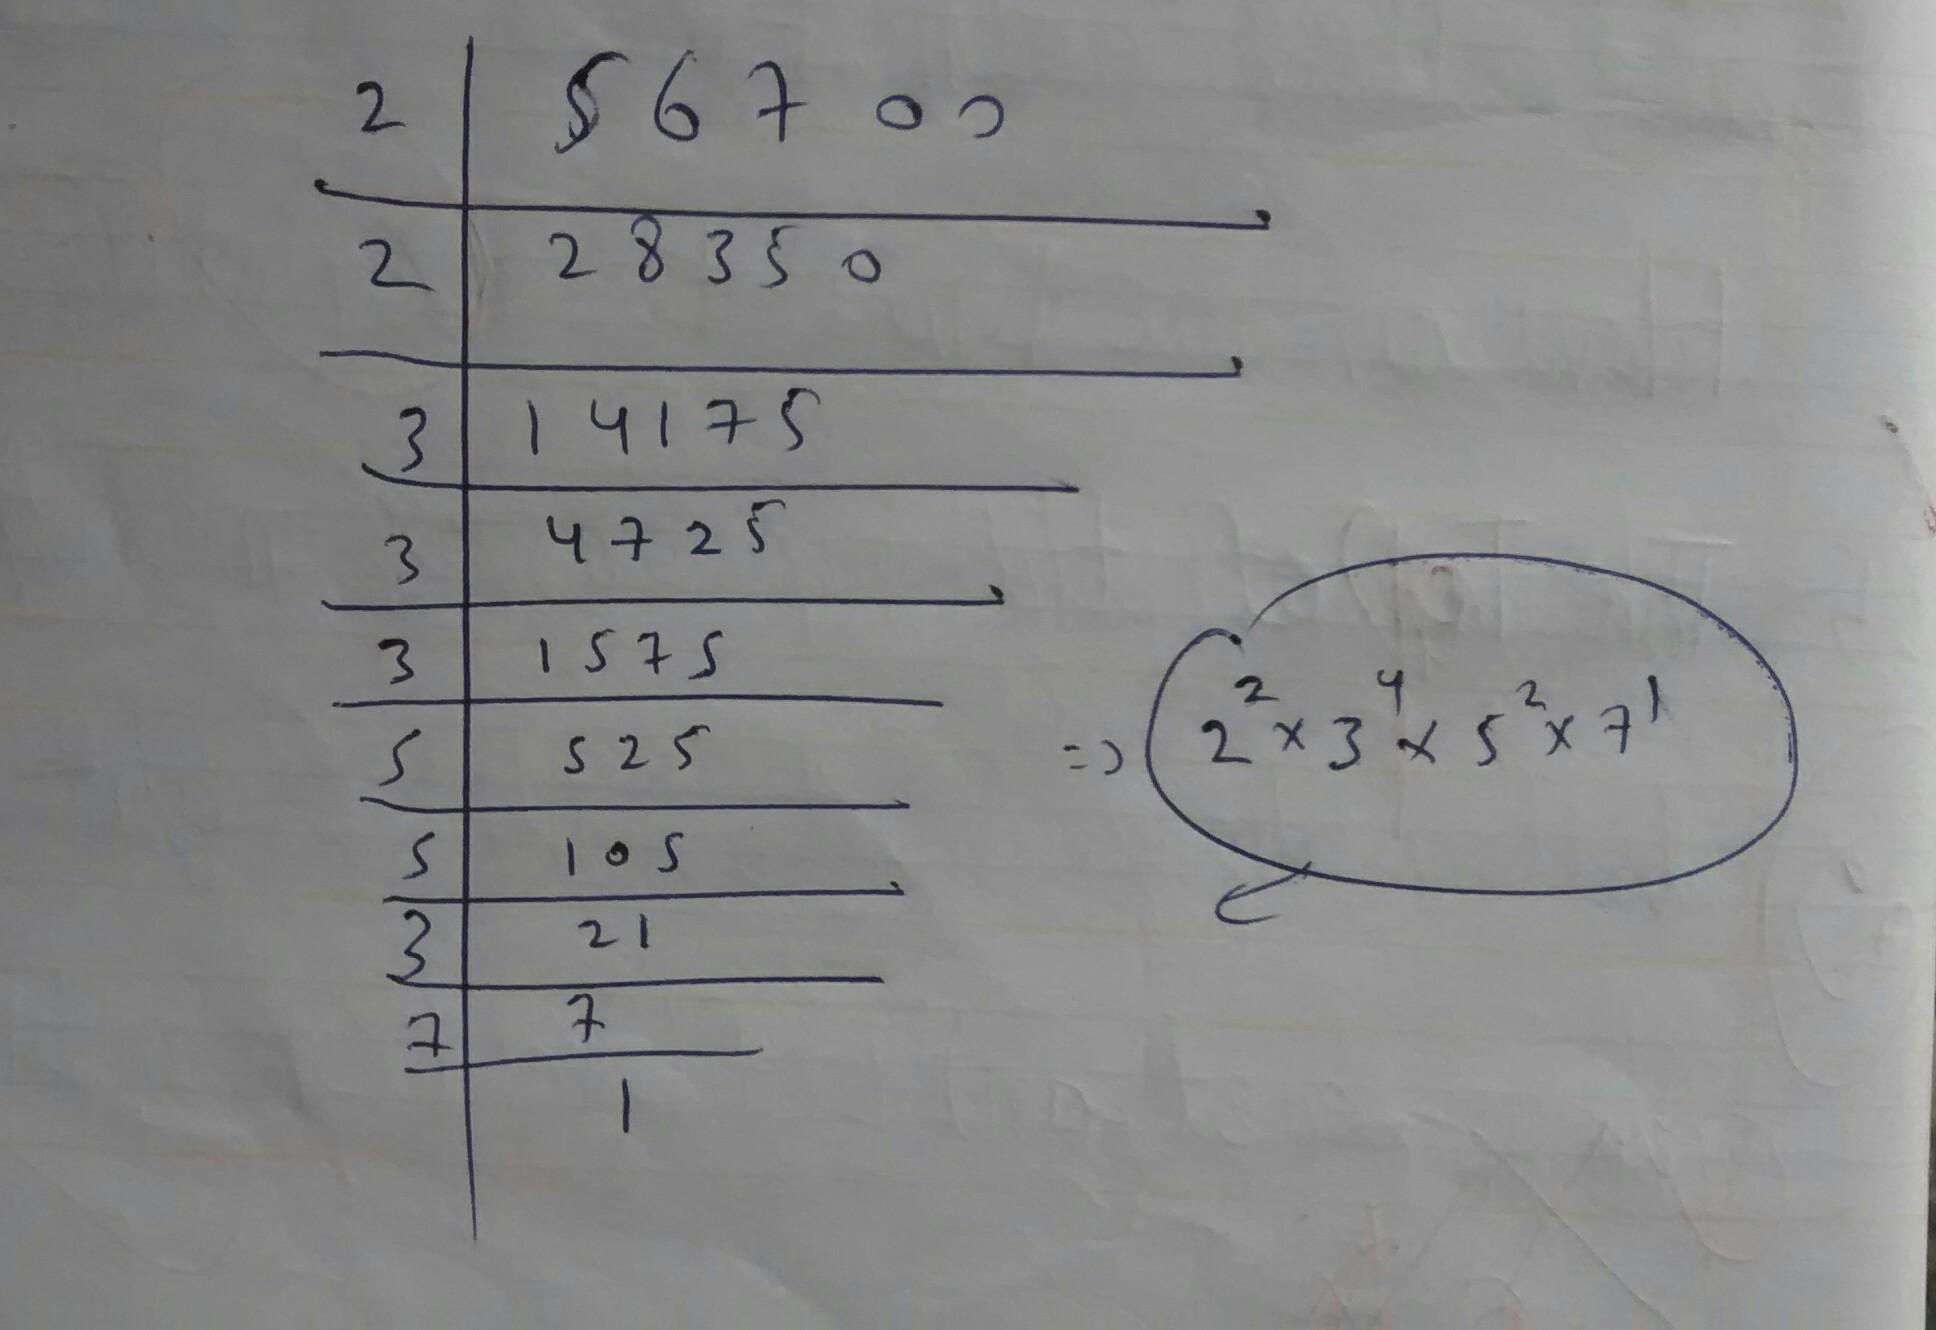 2 | 56700
2 | 28350
3 | 14175
3 | 4725
3 | 1575
5 | 525
5 | 105
3 | 21
7 | 7
1
=> 2² × 3⁴ × 5² × 7¹